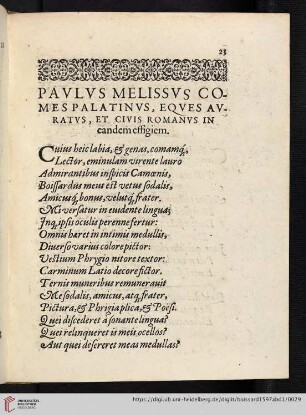 23
PAVLVS MELISSVS CO-
MES PALATINVS, EQVES AV-
RATVS, ET CIVIS ROMANVS IN
eandem effigiem.
Cuius heic labia, & genas, comamq́,
Lector, eminulam virente lauro
Admirantibus inspicis Camœnis,
Boissardus meus est vetus sodalis,
Amicusq́, bonus, velutq́, frater.
Mi versatur in euidente lingua;
Inq́, ipsis oculis perenne fertur:
Omnis haret in intimis medullis,
Diuerso varius colore pictor:
Vestium Phrygio nitore textor:
Carminum Latio decore fictor.
Ternis muneribus remunerauit
Me sodalis, amicus, atq́, frater,
Pictura, & Phrigia plica, & Poësi.
Quei discederet à sonante lingua?
Quei relinqueret is meis ocellos?
Aut quei desereret meas medullas?
https://digi.ub.uni-heidelberg.de/diglit/boissard1597abd1/0029
UNIVERSITÄTS-
BIBLIOTHEK
HEIDELBERG